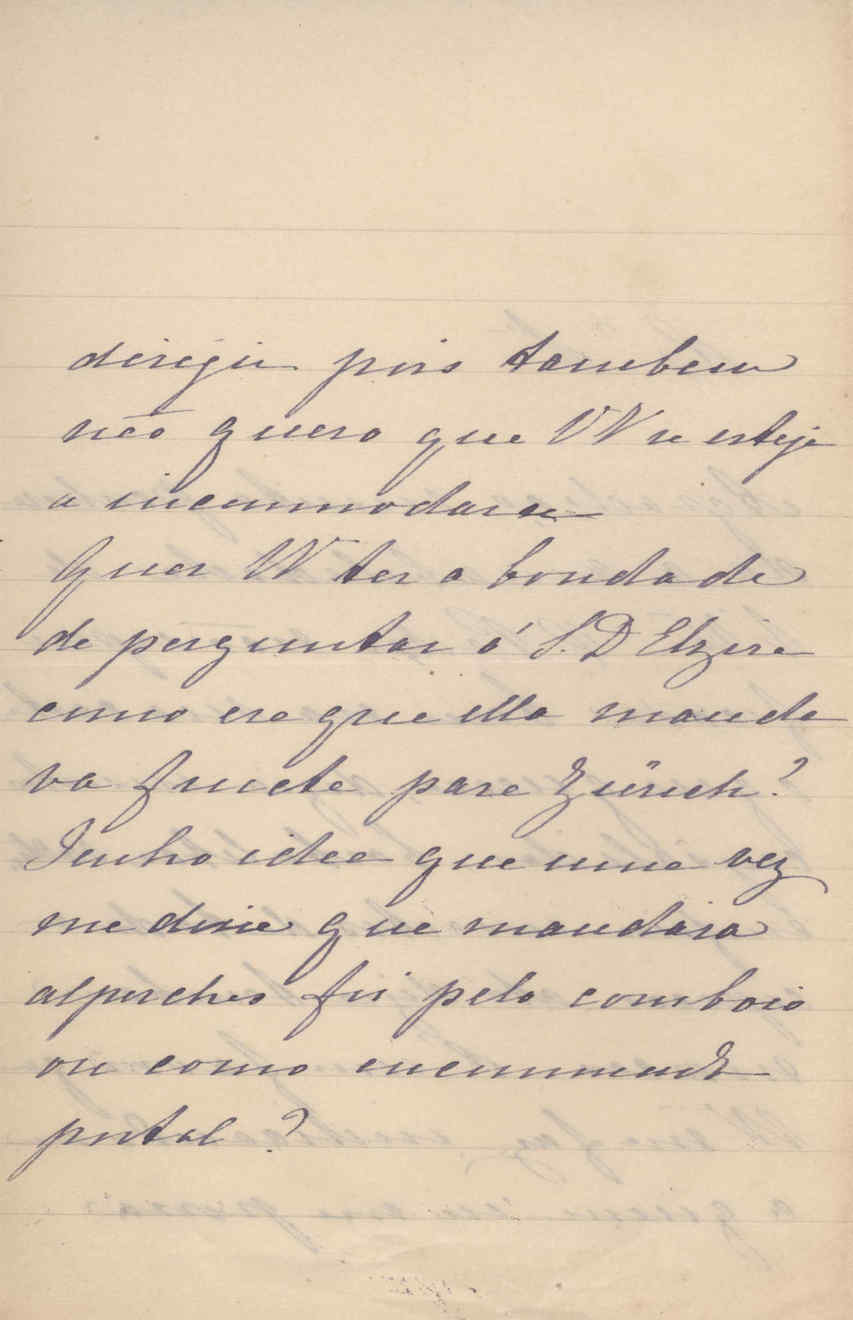 dirigir pois tambem
não quero que VV se esteja
a incommodar
Quer VV ter a bondade
de perguntar á S. D Elzira
como era que ella manda
va fructa para Zürich?
Tenho idea que uma vez
me disse que mandara
alperches foi pelo comboio
ou como encommenda
postal?